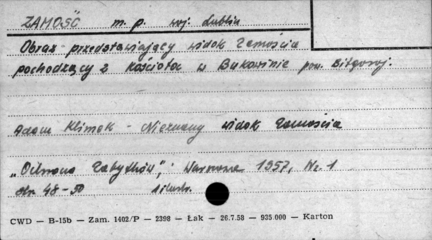 ZAMOŚĆ m. p. woj. Lublin
Obraz przedstawiający widok Zamościa
pochodzący z Kościoła w Bukowinie pow. Biłgoraj.
Adam Klimek - Nieznany widok Zamościa
„Ochrona Zabytków", Warszawa 1957, Nr 1
str. 48-50 1 ilustr.
CWD — B-15b — Zam. 1402/P — 2398 — Łak — 26.7.58 — 925.000 — Karton